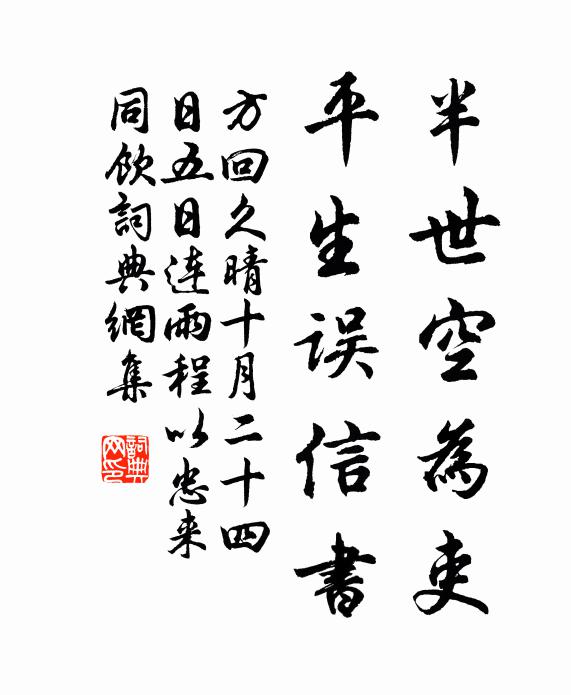 半世空為吏
平生误信書
方回久晴十月二十四
日五日連雨程以忠来
同飲詞典網集
詞典網印